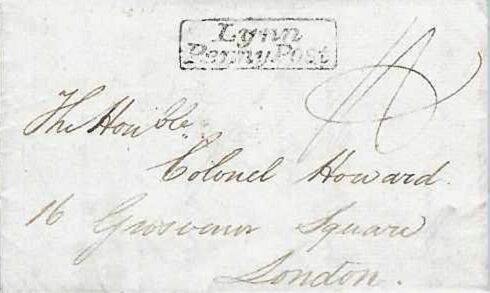 Lynn
Penny Post
The Honble
Colonel Howard.
16 Grosvenor Square
London.